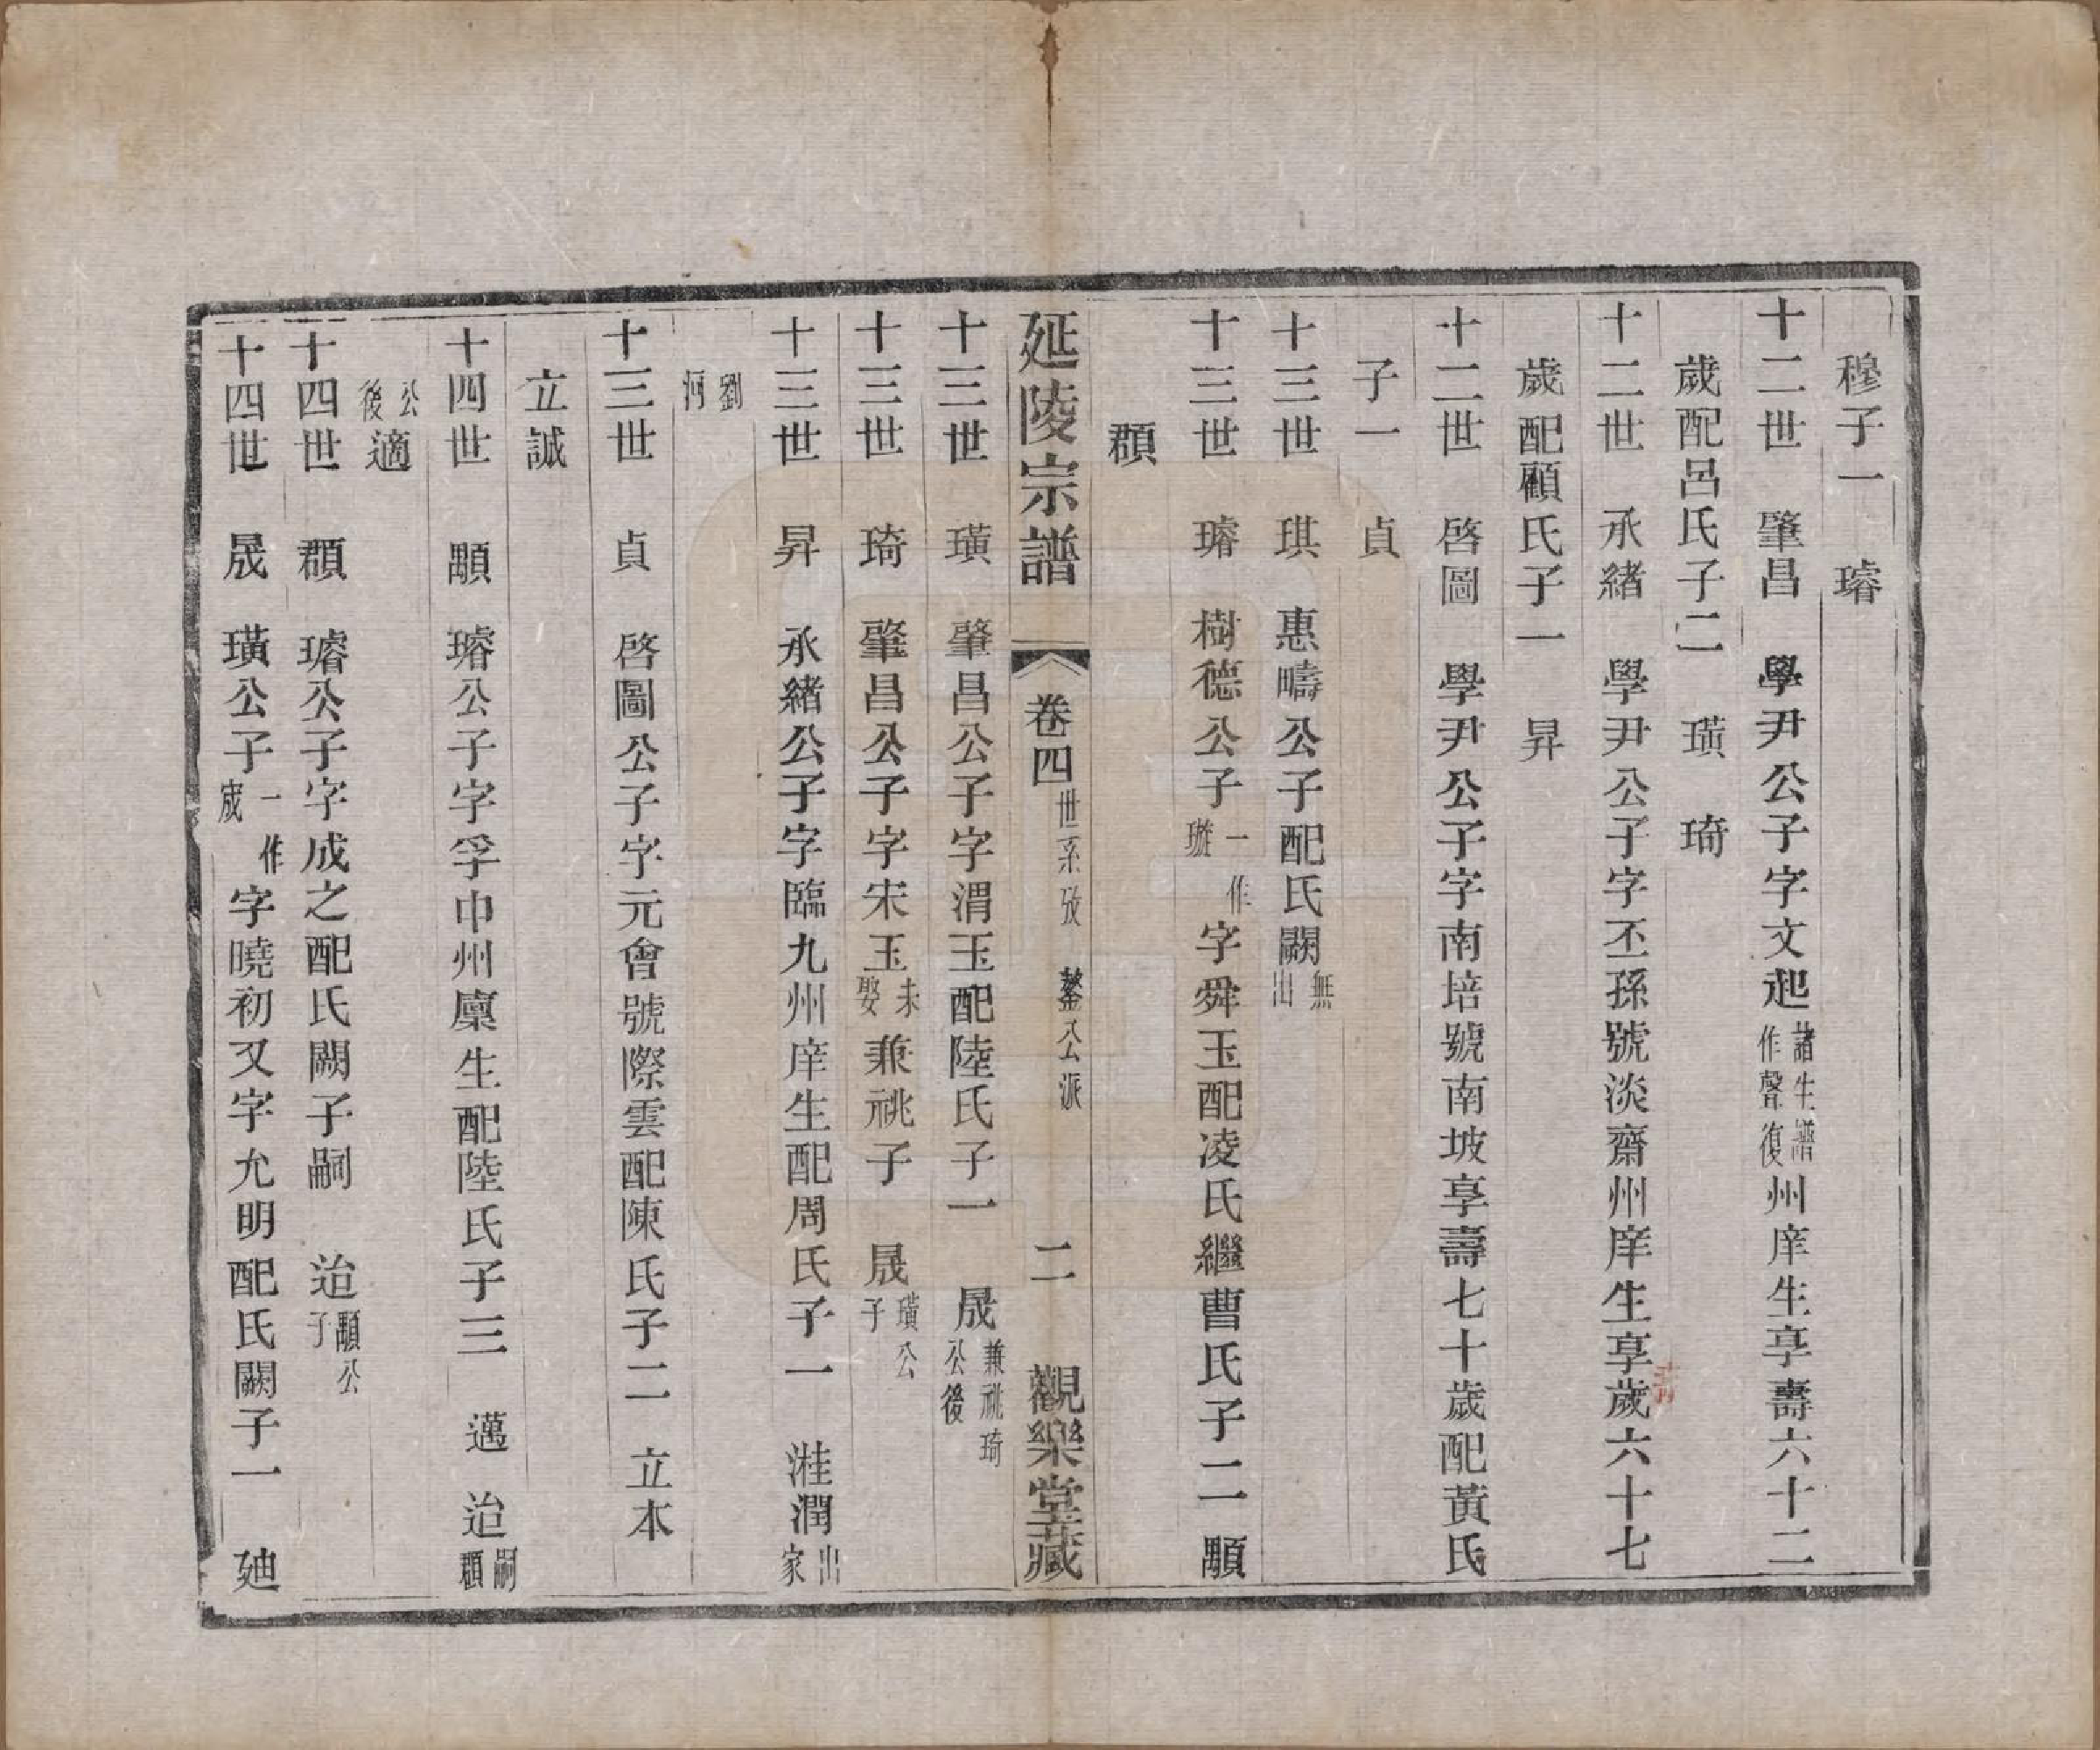 穆子一　璿
十二世　肇昌　學尹公子字文起諸生譜作聲復州庠生享壽六十二
歲配呂氏子二　璜　琦
十二世　承緒　學尹公子字丕孫號淡齋州庠生享歲六十七
歲配顧氏子一　昇
十二世　啓圖　學尹公子字南培號南坡享壽七十歲配黃氏
子一　貞
十三世　琪　惠疇公子配氏闕無出
十三世　璿　樹德公子一作璇字舜玉配凌氏繼曹氏子二　顒
頵
延陵宗譜　卷四　世系攷　鏊公派　二　觀樂堂藏
十三世　璜　肇昌公子字渭玉配陸氏子一　晟兼祧琦公後
十三世　琦　肇昌公子字宋玉未娶兼祧子　晟璜公子
十三世　昇　承緒公子字臨九州庠生配周氏子一　潤出家
劉河
十三世　貞　啓圖公子字元會號際雲配陳氏子二　立本
立誠
十四世　顒　璿公子字孚中州廩生配陸氏子三　邁　迨嗣頵
公後適
十四世　頵　璿公子字成之配氏闕子嗣　迨顒公子
十四世　晟　璜公子一作宬字曉初又字允明配氏闕子一　廸